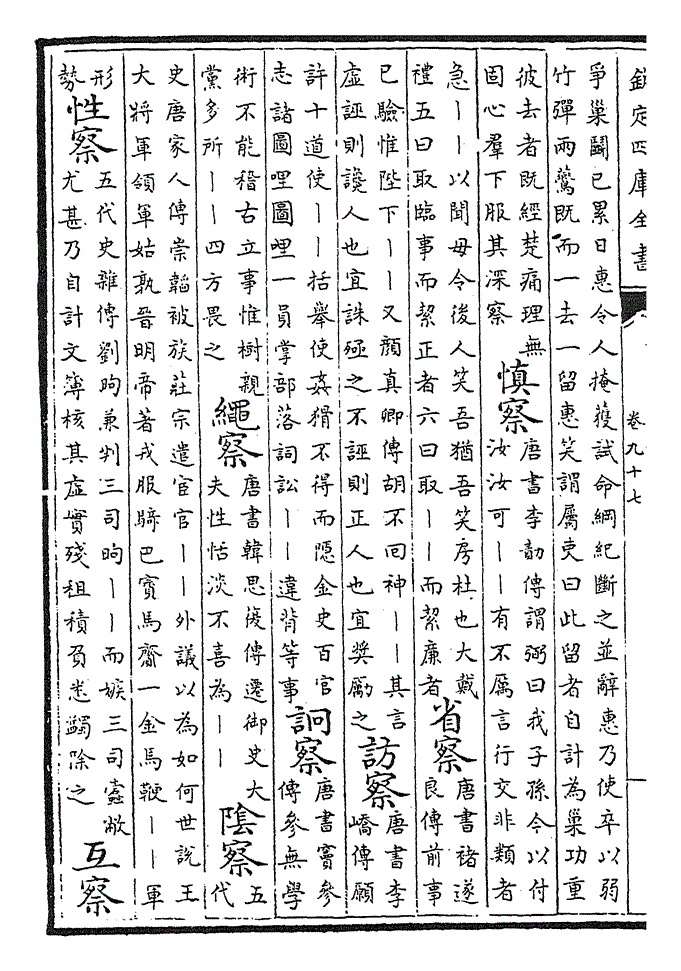 欽定四庫全書
卷九十七
爭巢鬭已累日惠令人掩䕶試命綱紀斷之並辭惠乃使卒以弱
竹彈兩鷰既而一去一留惠笑謂屬吏曰此留者自計為巢功重
彼去者既經楚痛理無
固心羣下服其深察
慎察
唐書李勣傳謂弼曰我子孫今以付
汝汝可丨丨有不厲言行交非類者
急丨丨以聞毋令後人笑吾猶吾笑房杜也大戴
禮五曰取臨事而絜正者六曰取丨丨而絜廉者
省察
唐書褚遂
良傳前事
已驗惟陛下丨丨又顔真卿傳胡不回神丨丨其言
虛誣則讒人也宜誅殛之不誣則正人也宜奬勵之
訪察
唐書李
嶠傳願
許十道使丨丨括舉使姦猾不得而隠金史百官
志諸圖哩圖哩一員掌部落詞訟丨丨違背等事
詗察
唐書竇參
傳參無學
術不能稽古立事惟樹親
黨多所丨丨四方畏之
繩察
唐書韓思復傳遷御史大
夫性恬淡不喜為丨丨
陰察
五
代
史唐家人傳崇韜被族莊宗遣宦官丨丨外議以為如何世說王
大將軍領軍姑孰晉明帝著戎服騎巴賨馬齎一金馬鞭丨丨軍
形
勢
性察
五代史雜傳劉昫兼判三司昫丨丨而嫉三司蠧敝
尤甚乃自計文簿核其虛實殘租積負悉蠲除之
互察